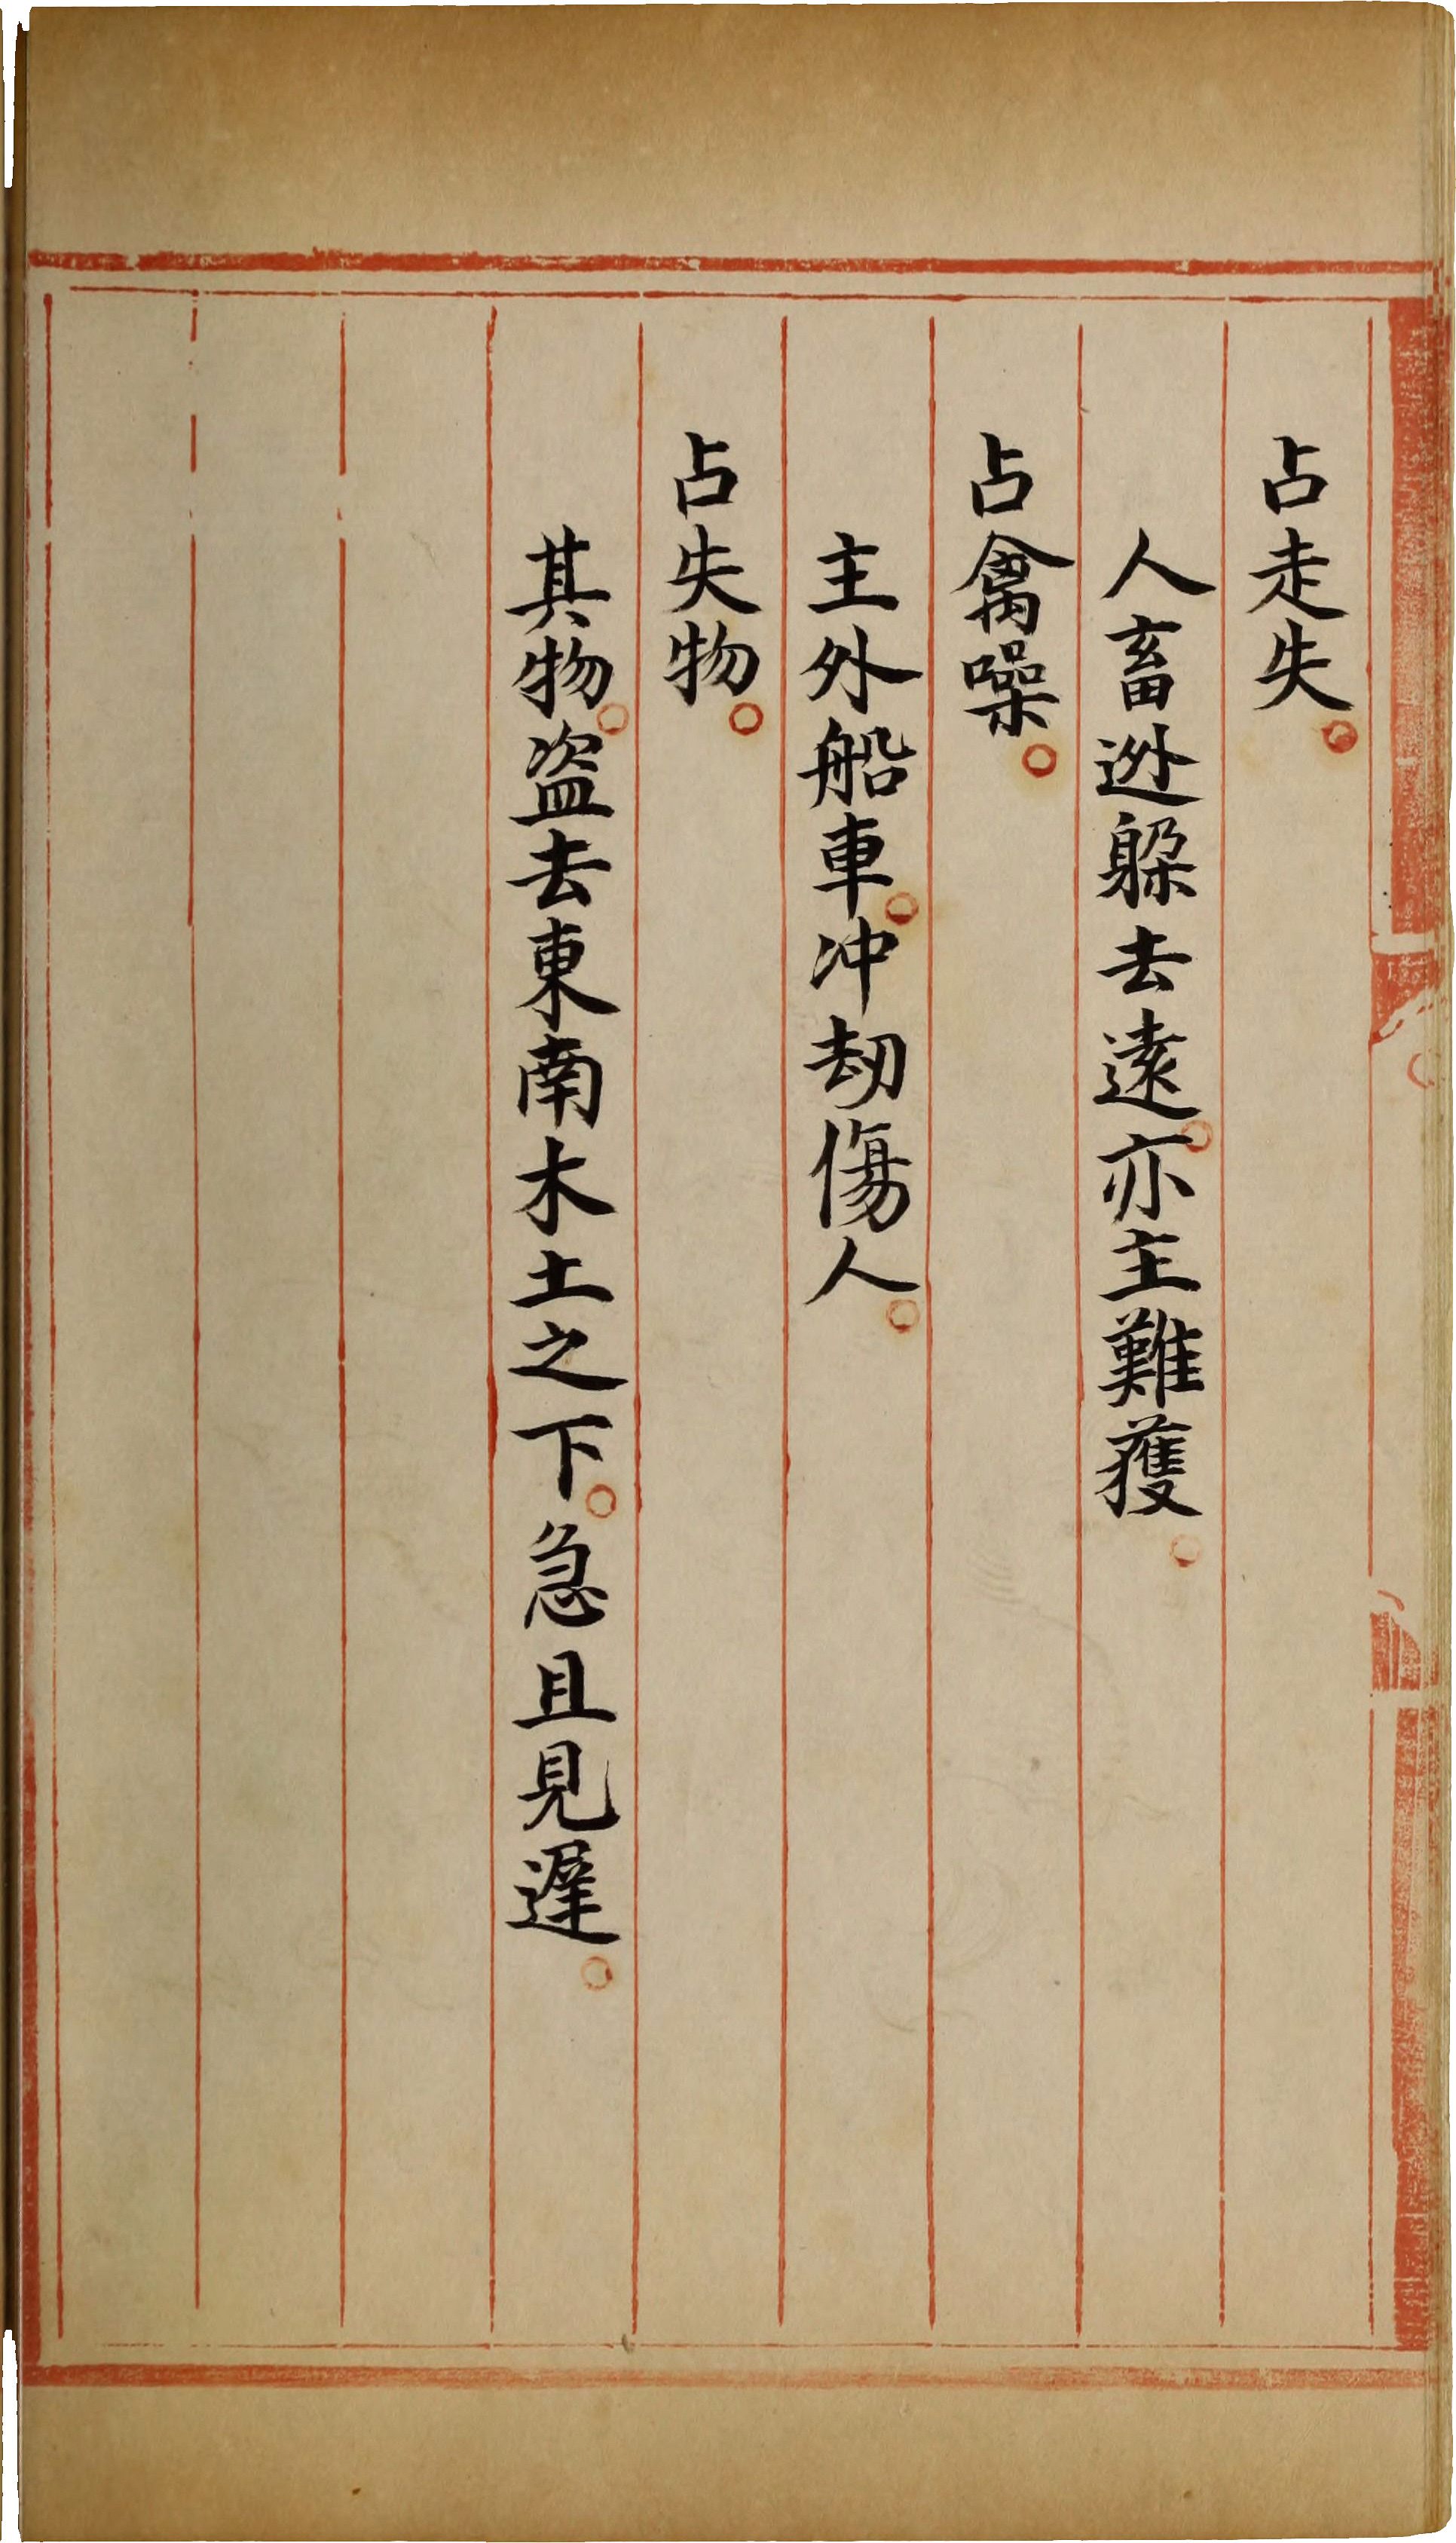 占走失。
人畜迯躲去遠。亦主難獲。
占禽噪。
主外船車。冲刧傷人。
占失物。
其物。盗去東南木土之下。急且見遲。